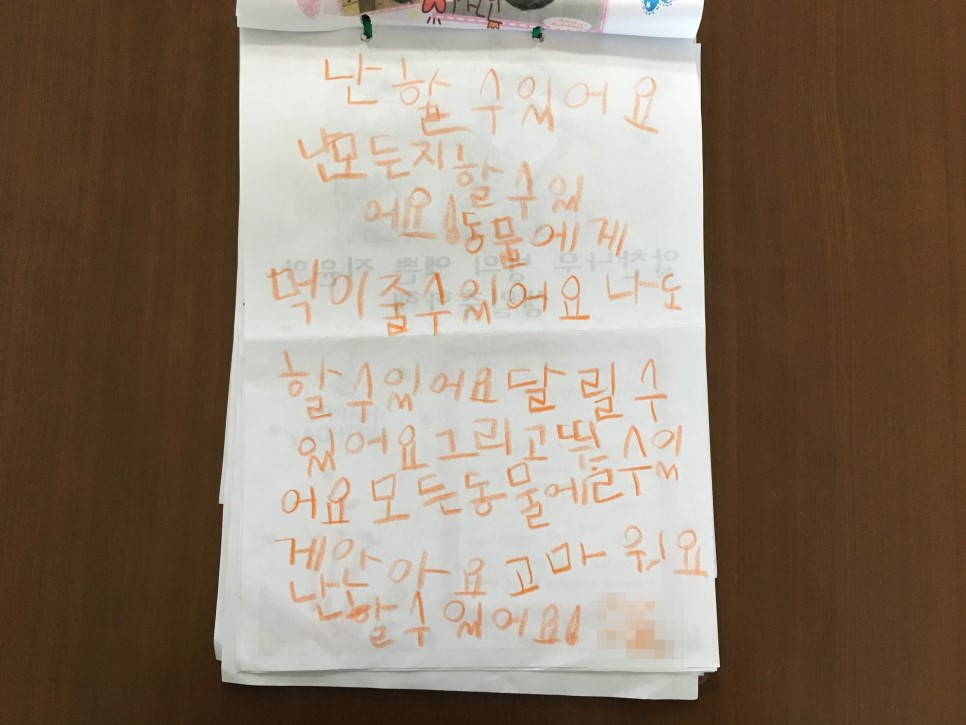 난 할 수있어요
난모든지할수있
어요!동물에게
먹이줄수있어요 나도
할수있어요달릴수
있어요그리고뛸수있
어요 모든동물에
게안아요고마워요
난할수있어요!